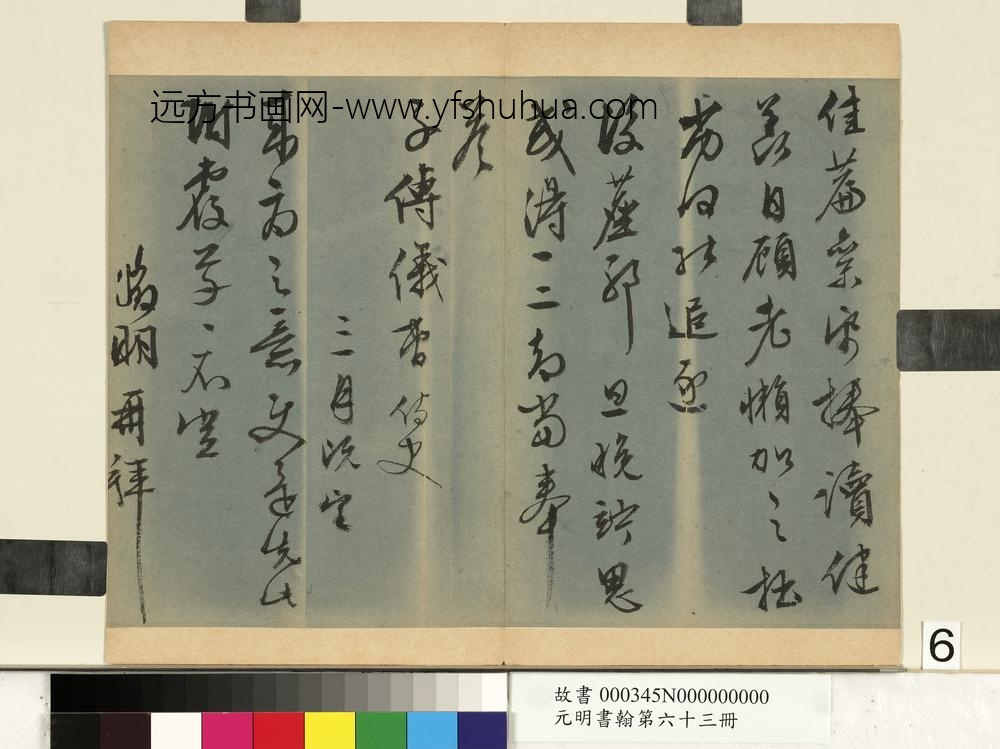 远方书画网-www.yfshuhua.com
佳篇捧讀健
羨自顧老懶加之拙
劣何能追逐
後塵耶旦晚思
或得一二首當奉
子傳儀曹侍史
三月
之意更先此
覆草草不
徵明再拜
6
故書 000345N000000000
元明書翰第六十三冊